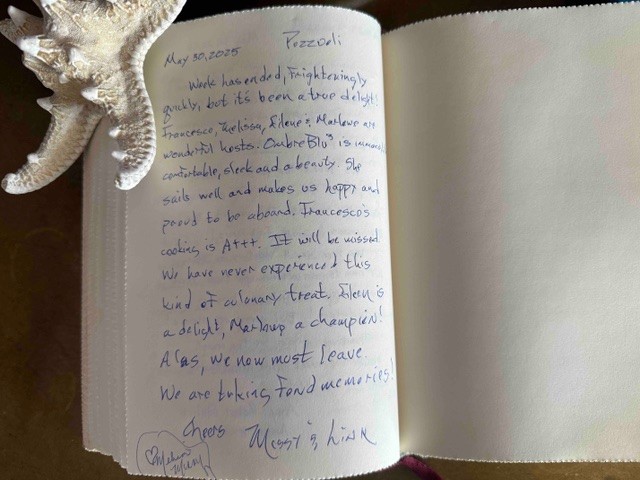 May 30, 2025 Pozzuoli
Week has ended, Frighteningly
quickly, but it's been a true delight!
Francesco, Melissa, Eilene & Marlowe are
wonderful hosts. OmbreBlu³ is
comfortable, sleek and a beauty. She
sails well and makes us happy and
proud to be aboard. Francesco's
cooking is A+++. It will be missed
We have never experienced this
kind of culonary treat. Eileen is
a delight, Marlowe a champion!
Alas, we now most leave.
We are taking fond memories!
Cheers Missy & Link